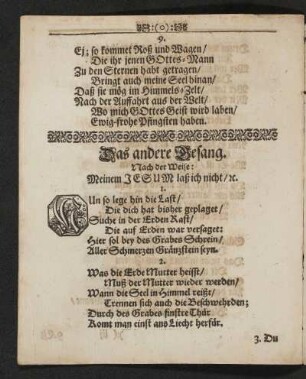 9.
Ey; so kommet Roß und Wagen/
Die ihr jenen GOttes-Mann
Zu den Sternen habt getragen/
Bringt auch meine Seel hinan/
Daß sie mög im Himmels-Zelt/
Nach der Auffahrt aus der Welt/
Wo mich GOttes Geist wird laben/
Ewig-frohe Pfingsten haben.
Das andere Gesang.
Nach der Weise:
Meinem JESUM laß ich nicht/ ꝛc.
1.
NUn so lege hin die Last/
Die dich hat bisher geplaget/
Suche in der Erden Rast/
Die auf Erden war versaget:
Hier sol bey des Grabes Schrein/
Aller Schmerzen Gränzstein seyn.
2.
Was die Erde Mutter heisst/
Muß der Mutter wieder werden/
Wann die Seel in Himmel reißt/
Trennen sich auch die Beschwehrden;
Durch des Grabes finstre Thür
Komt man einst ans Liecht herfür.
3. Du